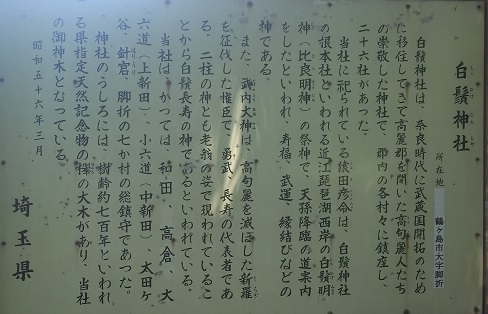 白鬚神社
しらひげじんじゃ
所在地 鶴ヶ島市大字脚折
白鬚神社は、奈良時代に武蔵国開拓のため
に移住してきて高麗郡を開いた高句麗人たち
の崇敬した神社で、郡内の各村々に鎮座し、
二十六社があった。
当社に祀られている猿田彦命は、白鬚神社
の根本社といわれる近江琵琶湖西岸の白鬚明
神（比良明神）の祭神で、天孫降臨の道案内
をしたといわれ、寿福、武運、縁結びなどの
神である。
また、武内大神は、高句麗を滅ぼした新羅
を征伐した権臣で、勇武、長寿の代表者であ
る。二柱の神とも老翁の姿で現われているこ
とから白鬚長寿の神であるといわれている。
当社は、かつては、和田、高倉、大
六道（上新田）、小六道（中新田）、太田ヶ
谷、針宮、脚折の七か村の総鎮守であった。
神社のうしろには、樹齢約七百年といわれ
る県指定天然記念物の欅の大木があり、当社
の御神木となっている。
昭和五十六年三月
埼玉県